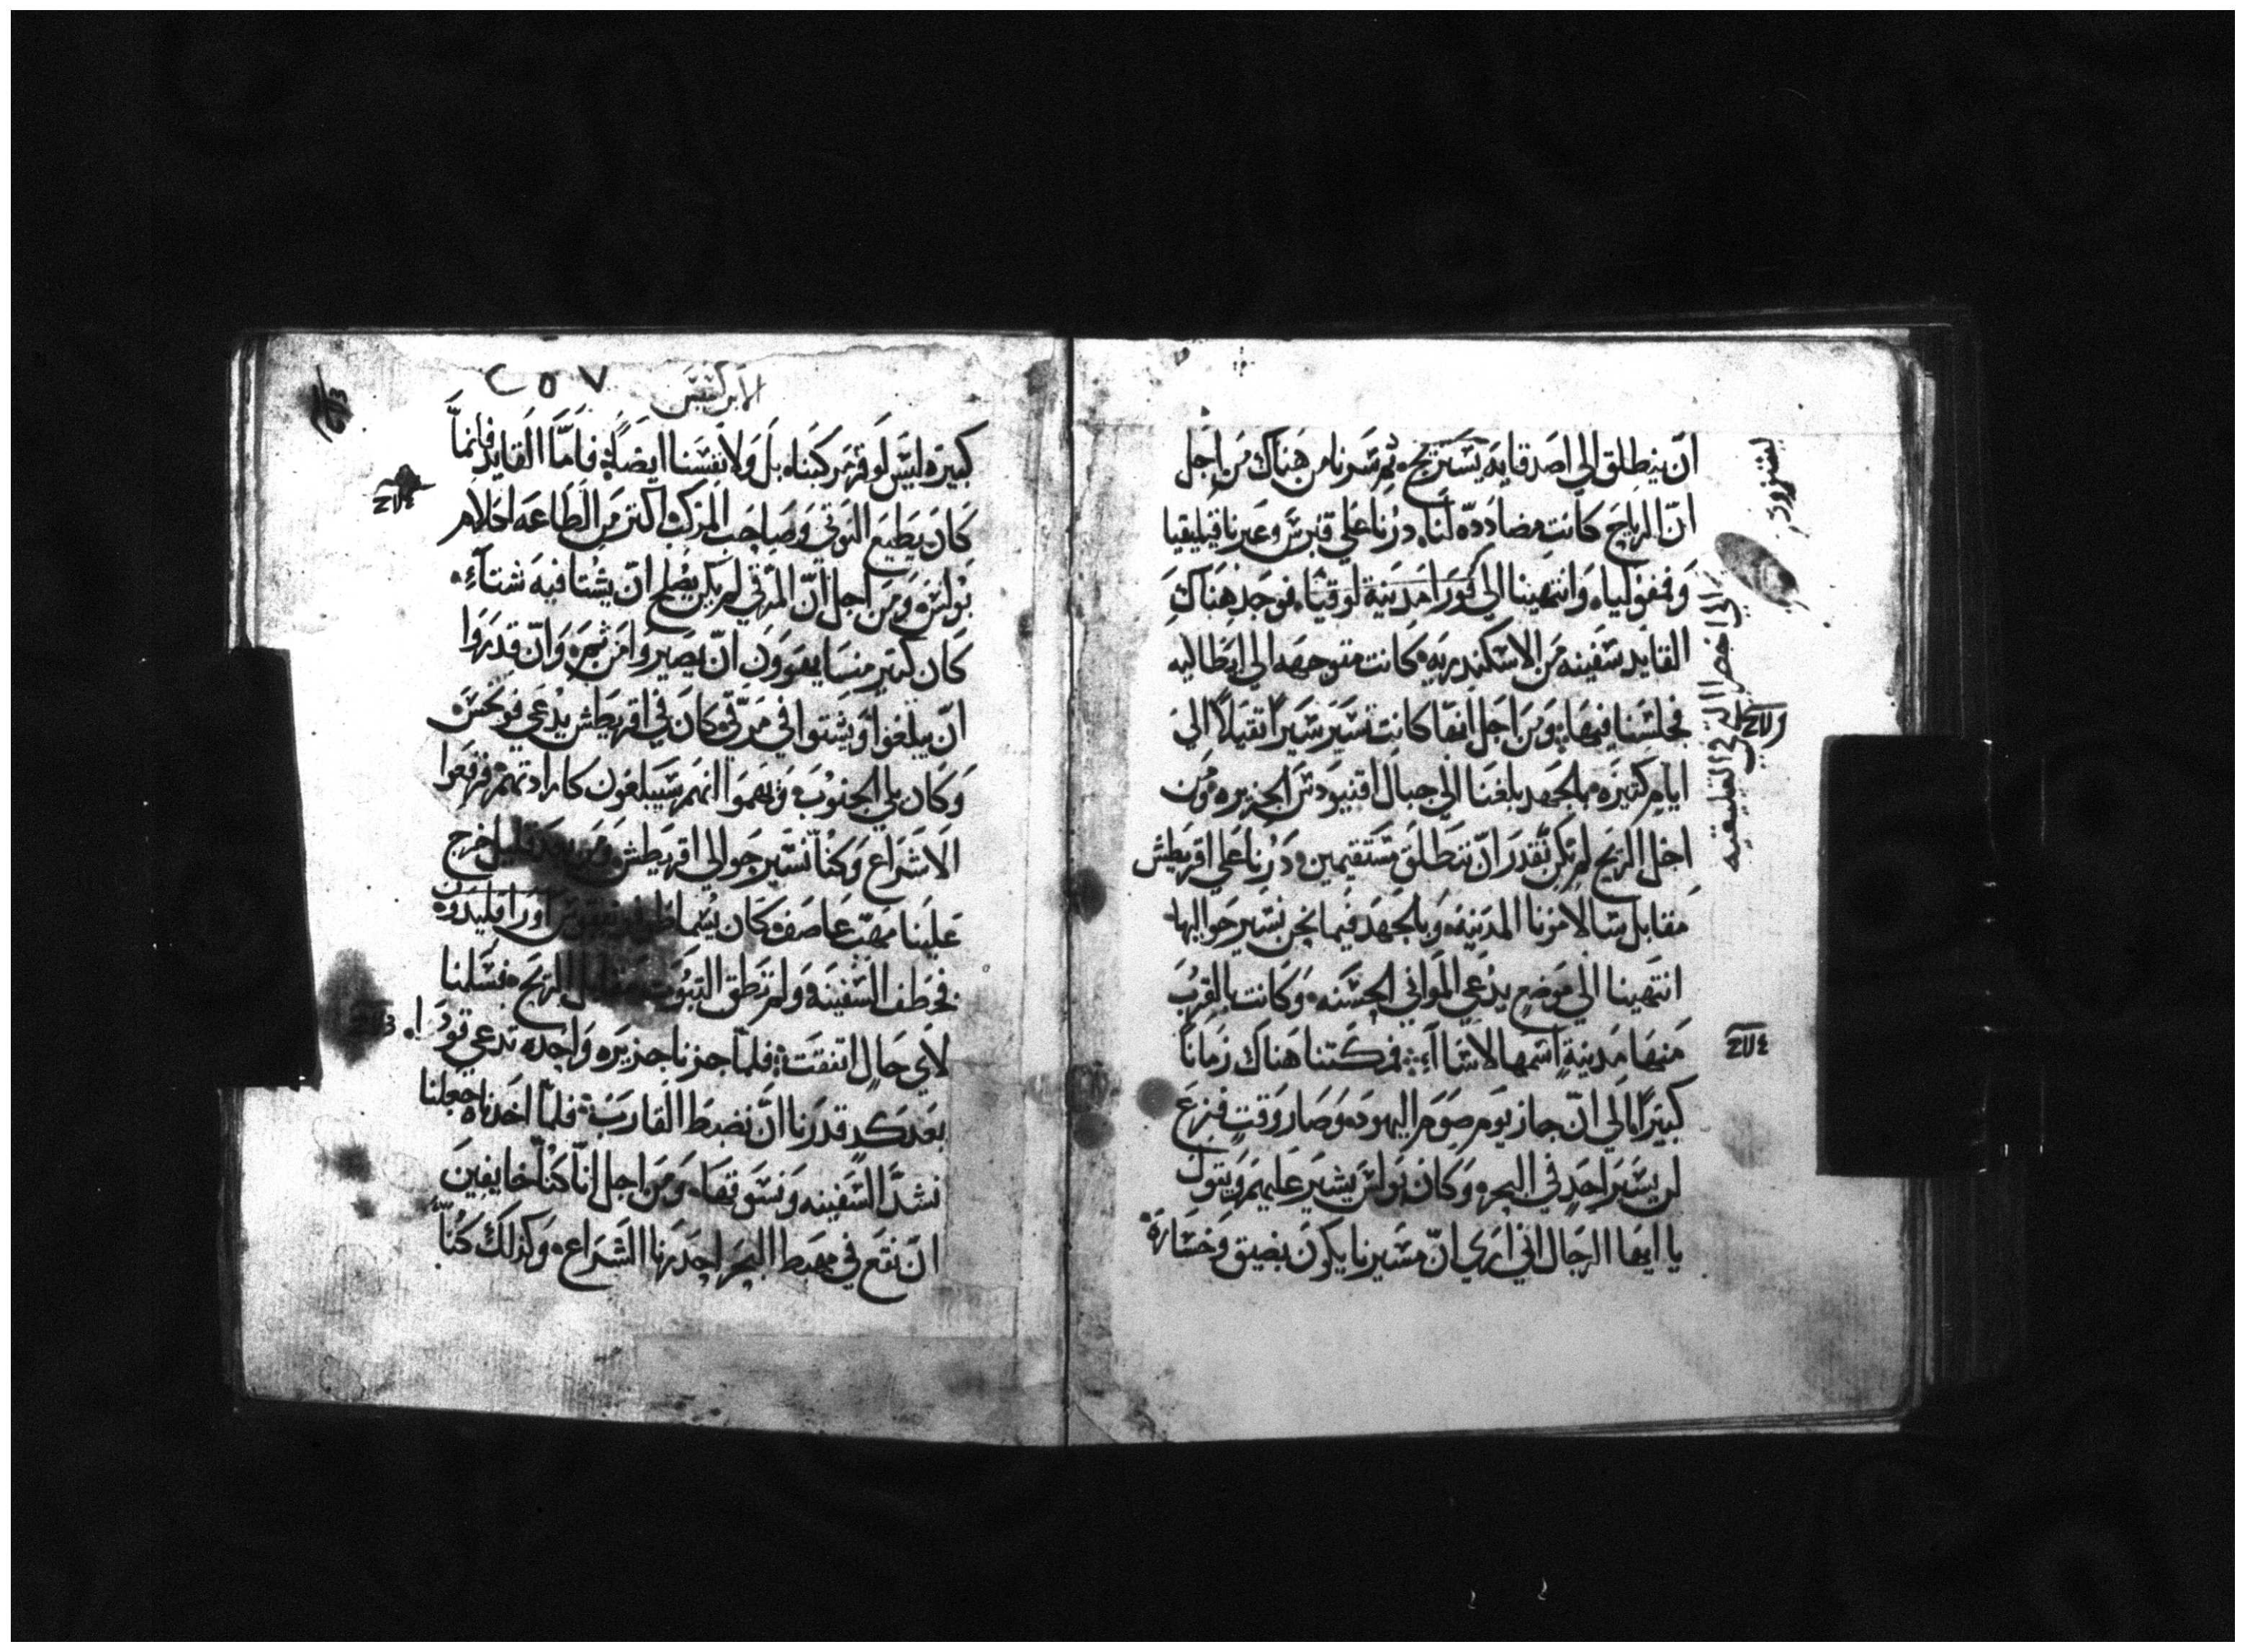 ان ينطلق الي اصدقايه يستريح ثم سرنا من هناك من اجل
ان الرياح كانت مضادده لنا درنا علي قبرس وعبرنا قيليقيا
وفمفوليا وانتهينا الي مورا مدينة لوقيا فوجد هناك
القايد سفينه من الاسكندريه كانت متوجهه الي ايطاليه
فجلسنا فيها ومن اجل انها كانت تسير سيرا ثقيلا الي
ايام كثيره بالجهد بلغنا الي جبال اقنيودس الجزيره ومن
اجل الريح لم نكن نقدر ان ننطلق مستقيمين درنا علي اقريطش
مقابل سالامونا المدينه وبالجهد فيما نحن نسير حواليها
انتهينا الي موضع يدعي المواني الحسنه وكانت بالقرب
منها مدينة اسمها لاساا فمكثنا هناك زمانا
كبيرا الي ان جاز يوم صوم اليهود وصار وقت فزع
لن يسير احد في البحر وكان بولس يشير عليهم ويقول
يا ايها الرجال اني اري ان مسيرنا يكون بضيق وخساره
الابركسيس
٢٥٧
كبيره ليس لوقر مركبنا بل ولانفسنا ايضا فاما القايد فانما
كان يطيع النوتي وصاحب المركب اكثر من الطاعه لكلام
بولس ومن اجل ان المرقي لم يكن يصلح ان يشتا فيه شتاء
كان كثير منا يهوون ان يصيروا من ثم وان قدروا
ان يبلغوا ويشتوا في مرقي كان في اقريطش يدعي فونكس
وكان يلي الجنوب وتهموا انهم سيبلغون كارادتهم فرفعوا
الاشراع وكنا نسير حوالي اقريطش ومن بعد قليل خرج
علينا مهب عاصف كان يسما اوراقليدون
فخطف السفينه ولم تطق الثبوت مقابل الريح فسلمنا
لاي حال اتفقت فلما جزنا جزيره واحده تدعي قودا
بعد كد قدرنا ان نضبط القارب فلما اخذناه جعلنا
نشد السفينه ونسوقها ومن اجل انا كنا خايفين
ان نقع في مهبط البحر احدرنا الشراع وكذلك كنا